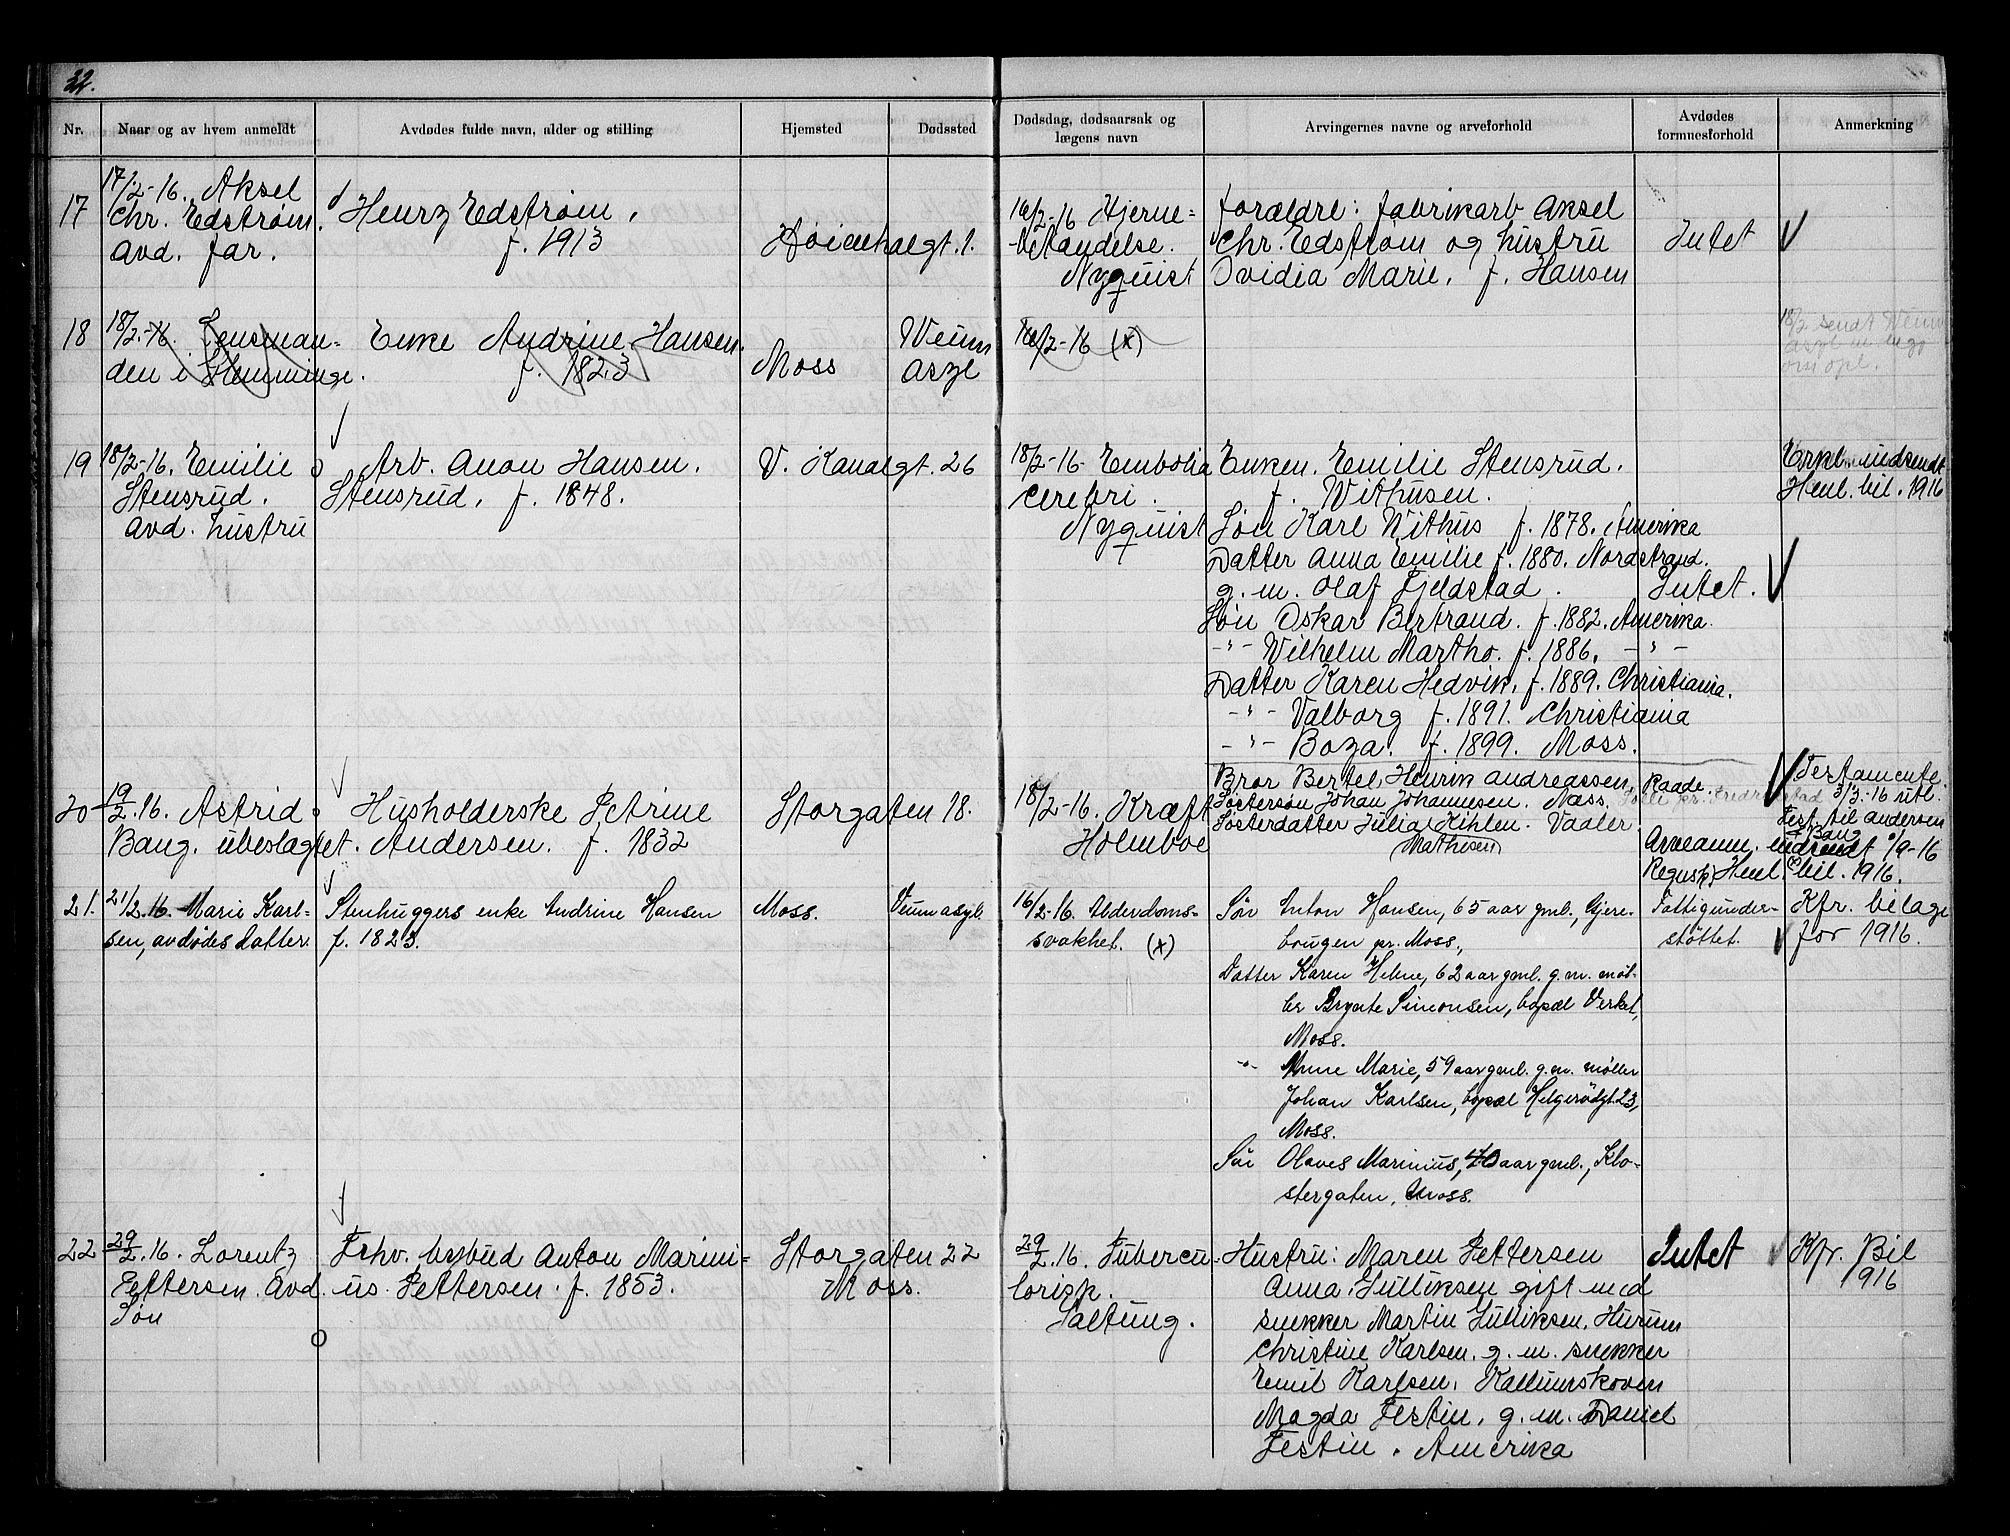 32.
Nr.
Naar og av hvem anmeldt
Avdødes fulde navn, alder og stilling
Hjemsted
Dødssted
Dødsdag, dødsaarsak og
lægens navn
Arvingernes navne og arveforhold
Avdødes
formuesforhold
Anmerkning
17
17/2-16. Aksel
Chr. Edstrøm.
avd. far.
Henry Edstrøm.
f. 1913
Høienhalgt. 1.
16/2-16 Hjerne=
betændelse.
Nyquist
Forældre: fabrikarb Aksel
Chr. Edstrøm og hustru
Ovidia Marie. f. Hansen
Intet
18
18/2-16. Lensman=
den i Glemminge.
Enke Andrine Hansen.
f. 1823
Moss
Veum
Asyl
16/2-16 (x)
18/2 sendt Veum
opl.
19
18/2-16. Emilie
Stensrud.
avd. hustru
Arb. Anon Hansen.
Stensrud. f. 1848.
V. Kanalgt. 26
18/2-16. Embolia
cerebri.
Nyquist
Enken. Emilie Stensrud.
f. Withusen.
Søn Karl Withus f. 1878. Amerika
Datter Anna Emilie f. 1880. Nordstrand.
g. m. Olaf Fjeldstad.
Søn Oskar Bertrand. f. 1882. Amerika.
-"- Wilhelm Martho. f. 1886. -"-
Datter Karen Hedvik. f. 1889. Christiania.
-"- Valborg f. 1891. Christiania
-"- Boza. f. 1899. Moss.
Intet.
Erkl. indsendt
Henl. bil. 1916
20
19/2.16. Astrid
Bang. ubeslagtet.
Husholderske Petrine
Andersen. f. 1832
Storgaten 18.
18/2-16. Kræft
Holmboe
Bror Bertel Henrik Andreassen, Raade.
Søstersøn Johan Johannesen. Næss.
Søsterdatter Julia Kihlen. Vaaler.
(Mathisen)
Testamente
3/3-16 utl.
Test. til Andersen
Bang
Arveanm. indsendt 1/9-16
Henl. bil. 1916.
21.
21/2.16. Marie Karl-
sen, avdødes datter.
Stenhuggers enke Andrine Hansen
f. 1823.
Moss.
Veum asyl.
16/2-16. Alderdoms-
svakhet. (x)
Søn Anton Hansen, 65 aar gml., Gjere-
bougen pr. Moss.,
Datter Karen Helene, 62 aar gml. g. m. møl-
ler Bryrte Simonsen, bopæl Verket,
Moss.
-"- Anne Marie, 59 aar gml. g. m. møller
Johan Karlsen, bopæl Helgerødgt. 23,
Moss.
Søn Olaves Marinius, 40 aar gml., Klo-
stergaten, Moss.
Fattigunder-
støttet.
Kfr. bilage
for 1916.
22
29/2.16. Lorentz
Pettersen. Avd.
Søn
Fhv. bybud Anton Marini=
us. Pettersen. f. 1853.
Storgaten 22
Moss.
29/2.16. Tubercu-
lorisk.
Saltung.
Hustru: Maren Pettersen
Anna Gulliksen gift med
snekker Martin Gulliksen, Hurum
Christine Karlsen. g. m. snekker
Emil Karlsen. Kallumskoven
Magda Festin. g. m. Daniel
Festin. Amerika
Intet
Kfr. Bil
1916